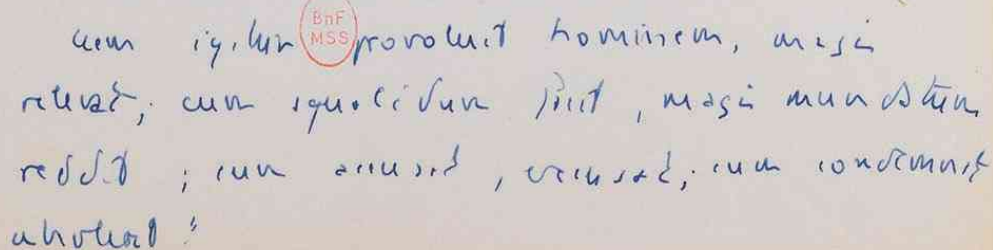 cum igitur provolvit hominem, magis
relevat; cum squalidum facit, magis mundatum
reddit; cum accusat, excusat; cum condemnat
absolvit"
BnF
MSS